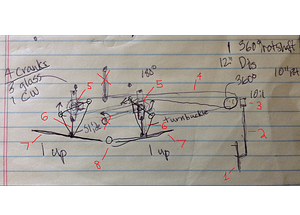 1 360° rotshaft
12" Dia
360°
4 cranks
3 glass
1 CW
180°
10:1
5
5
4
3
6
6
Slide
turnbuckle
2
7
1 up
8
1 up
7
1